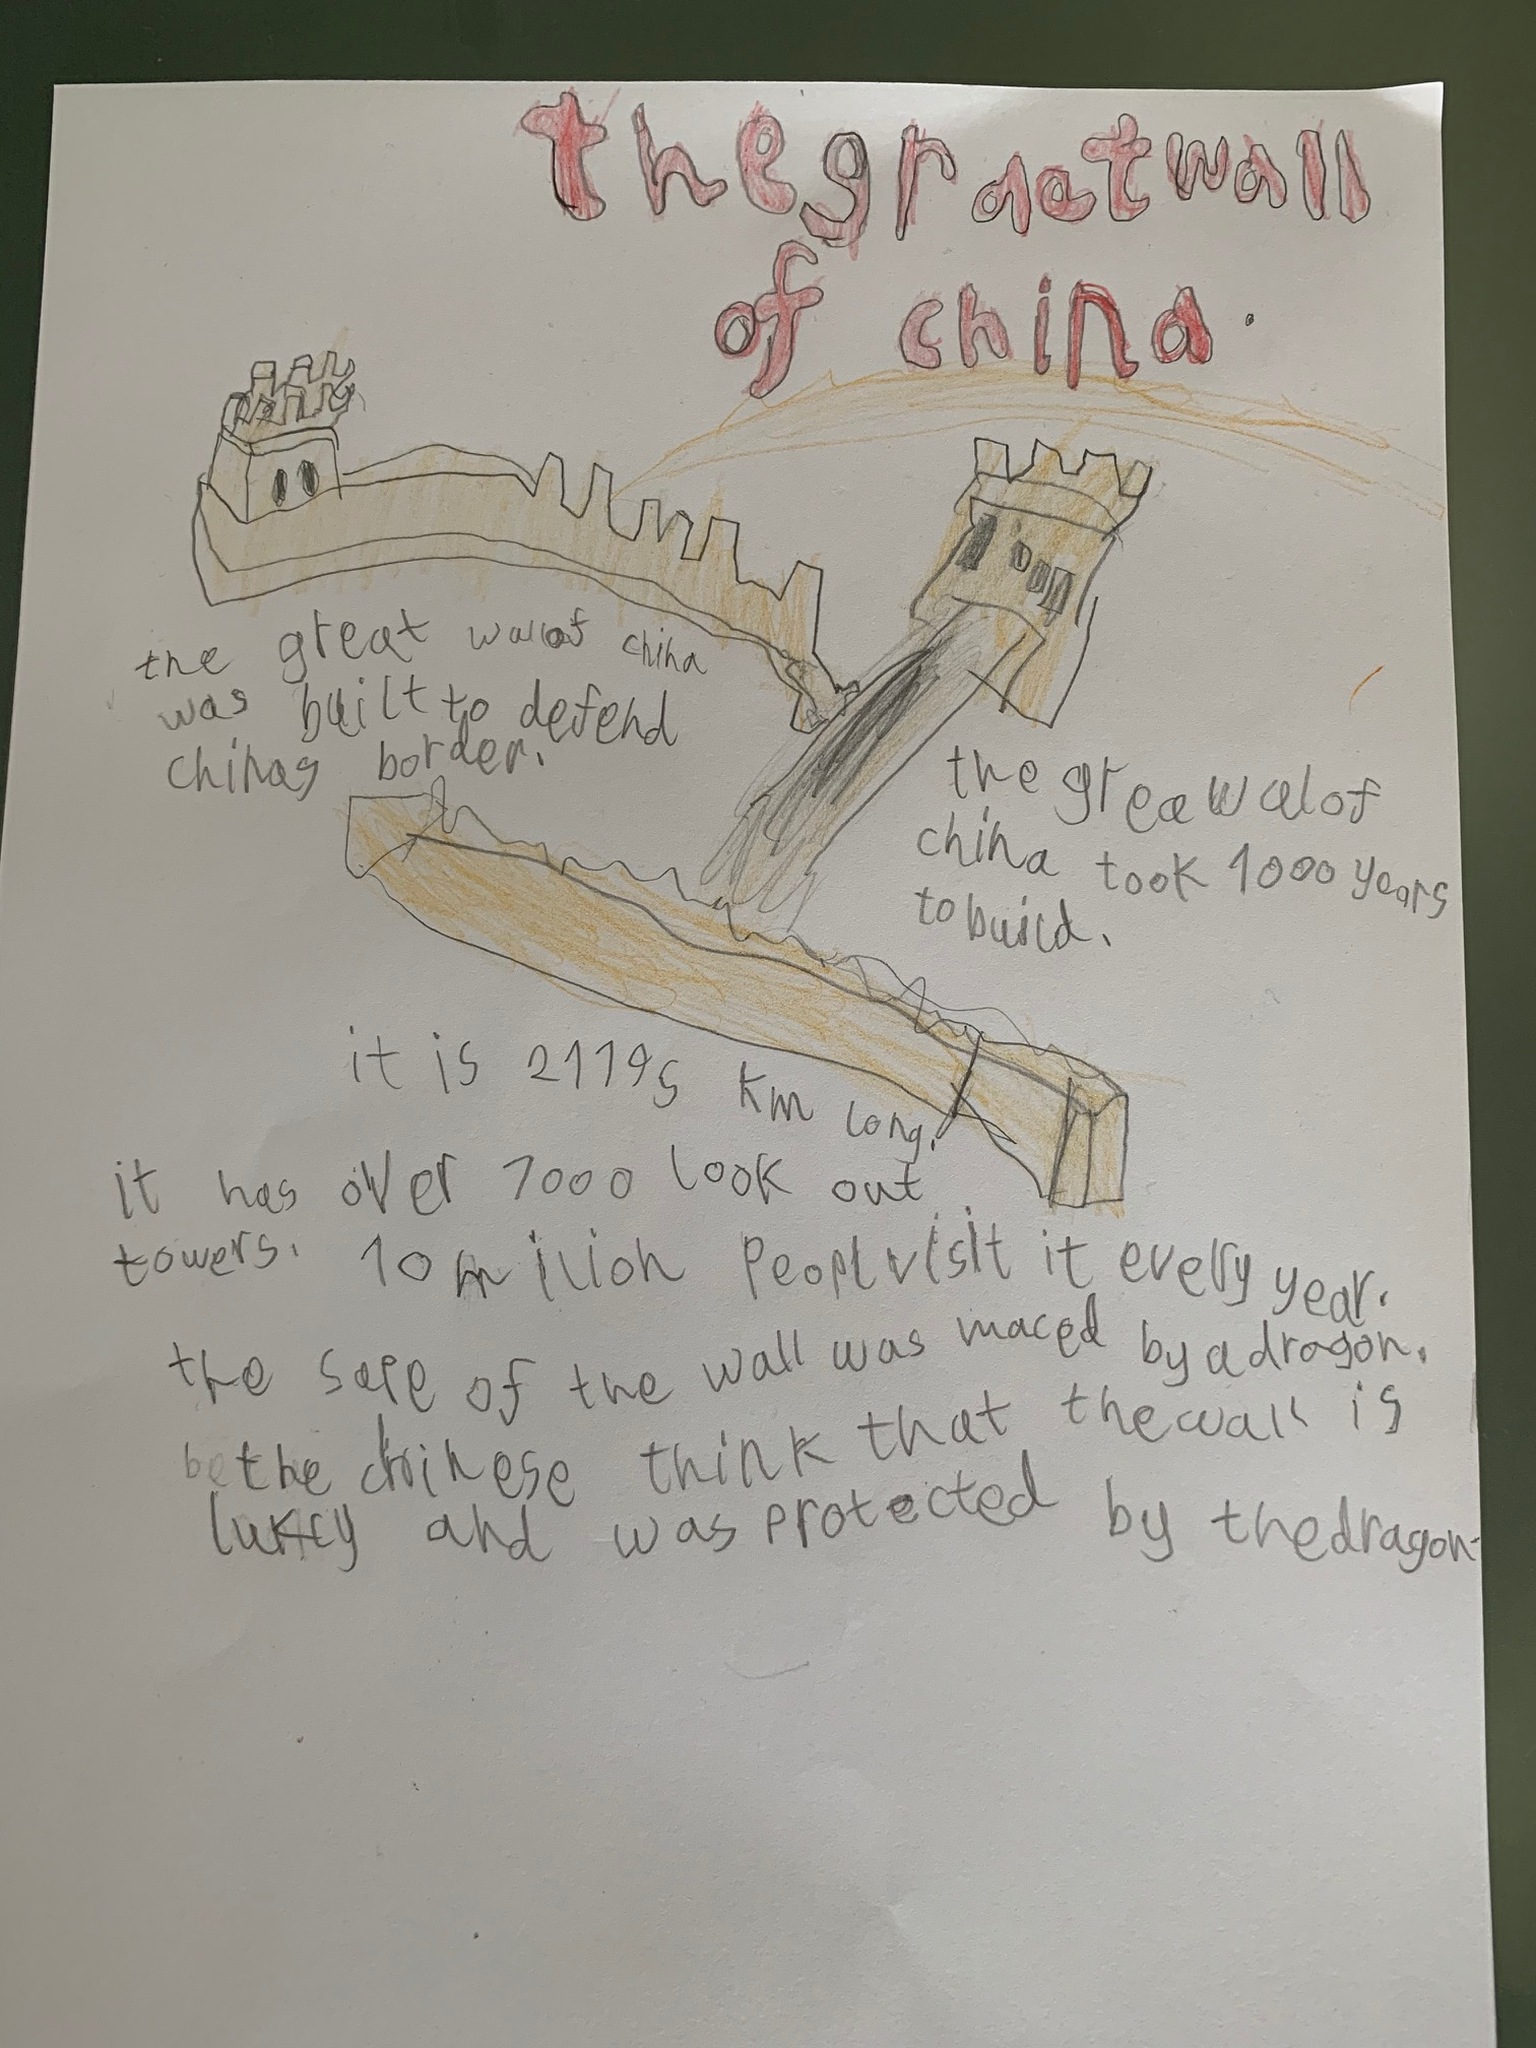 the graetwall
of china.
the great walof china
was built to defend
chinas border.
the grea walof
china took 1000 years
to build.
it is 21195 km long.
it has over 7000 look out
towers. 10 milion peopl visit it everyy year.
the sape of the wall was maced by a dragon.
be the chinese think that the wall is
lukcy and was protected by the dragon